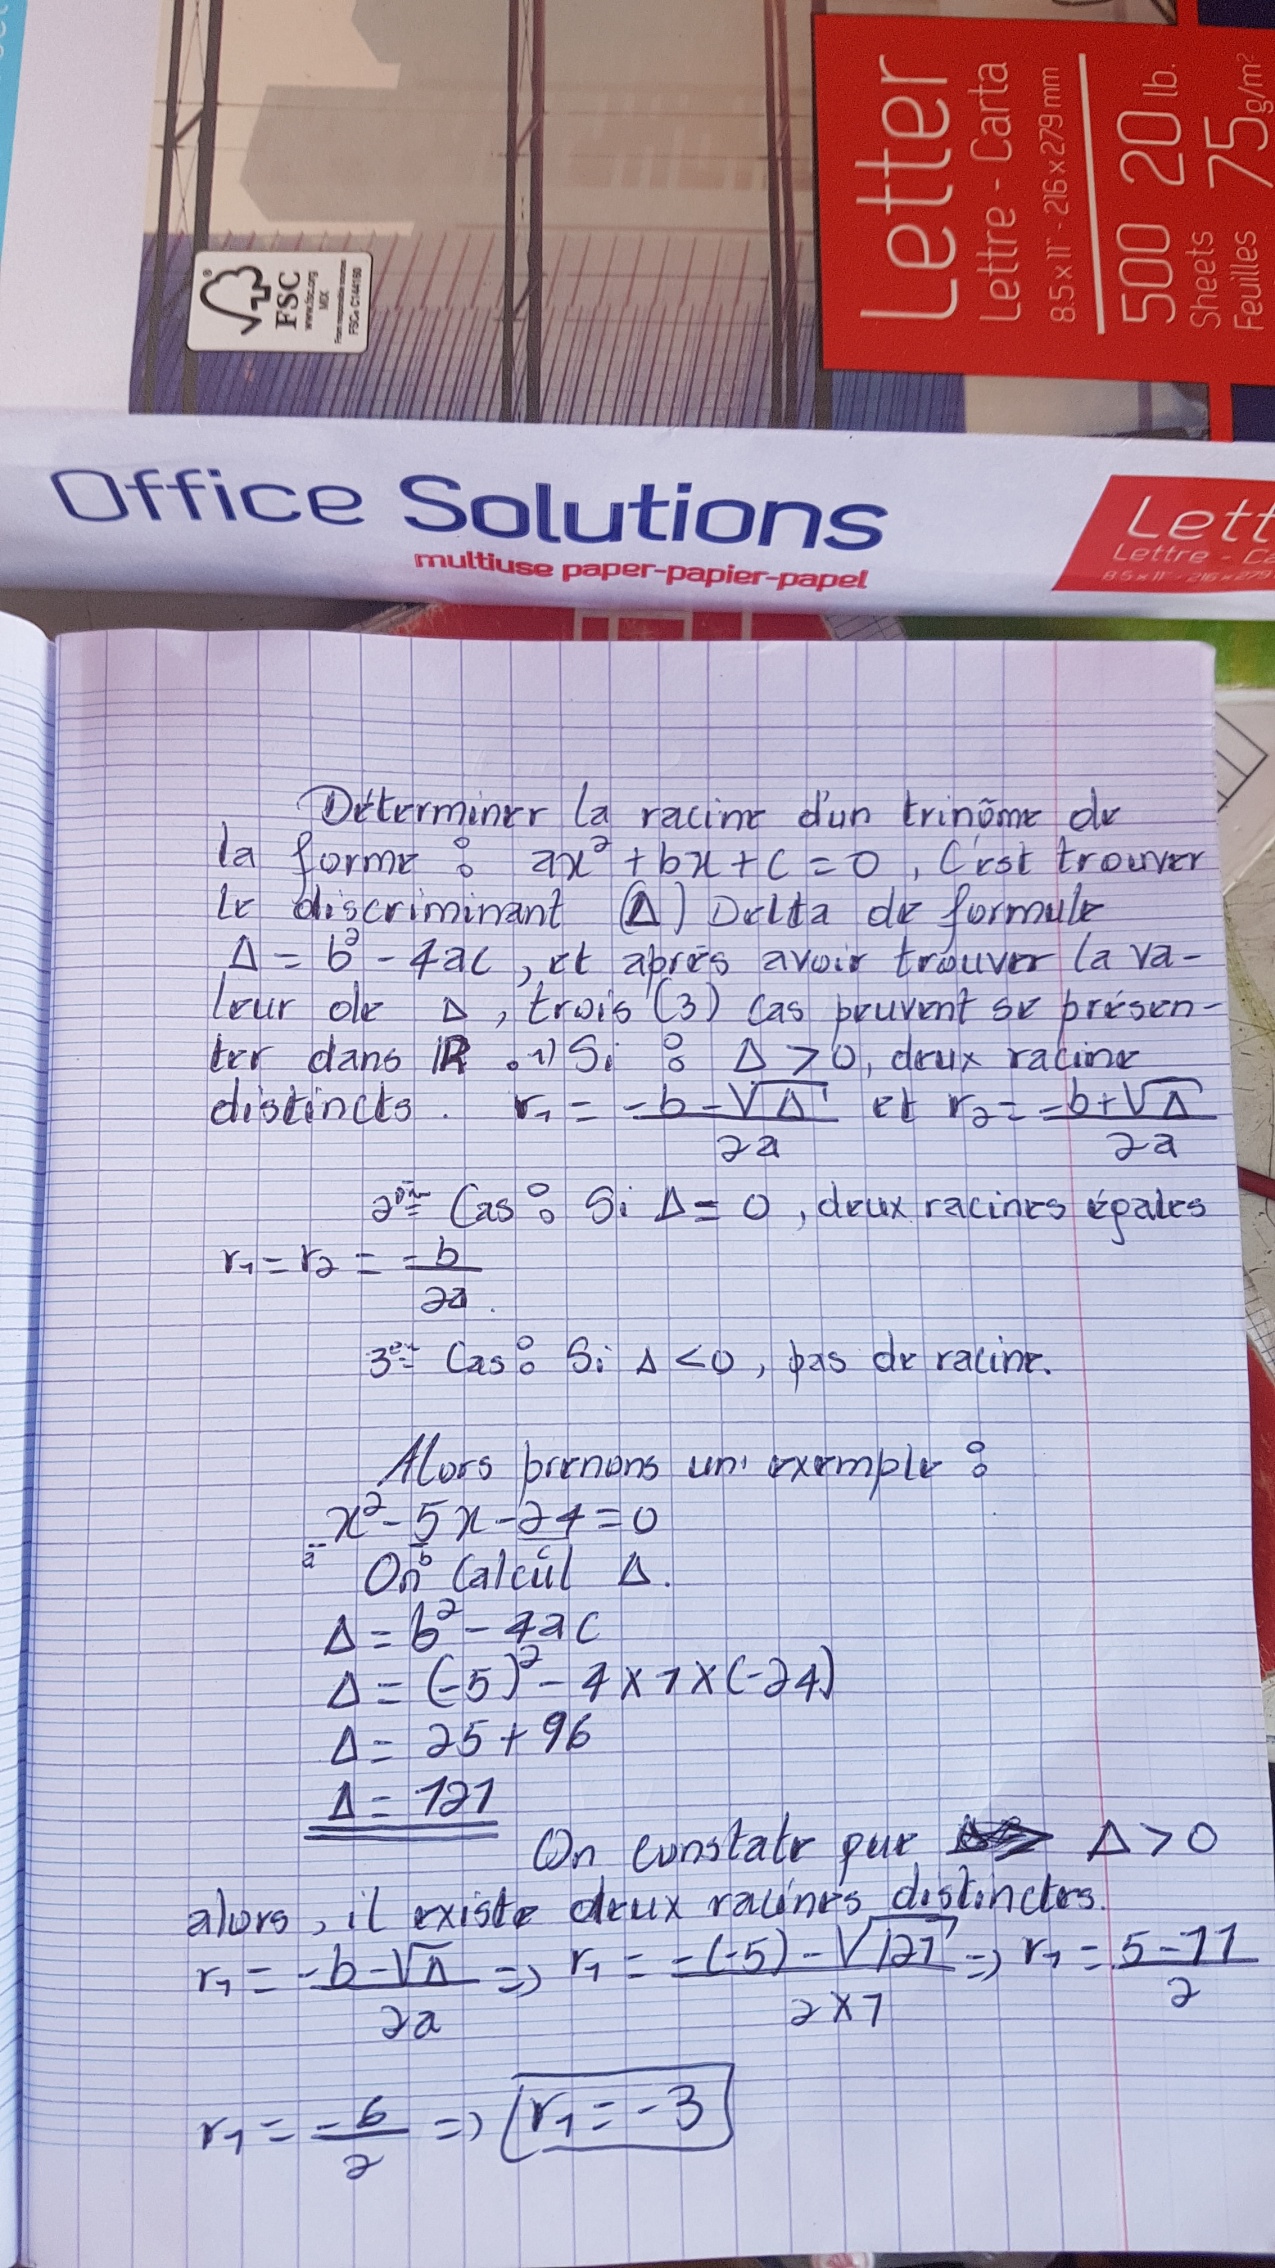 Letter
Lettre - Carta
8.5 x 11" - 216 x 279 mm
500 20 lb.
Sheets 75 g/m²
Feuilles
FSC
www.fsc.org
MIX
From responsible sources
FSC® C144160
Office Solutions
multiuse paper-papier-papel
Lett
Lettre - Ca
8.5 x 11" - 216 x 279
Déterminer la racine d'un trinôme de
la forme : ax² + bx + c = 0, C'est trouver
le discriminant (Δ) Delta de formule
Δ = b² - 4ac, et après avoir trouver la va-
leur de Δ, trois (3) cas peuvent se présen-
ter dans ℝ. 1) Si : Δ > 0, deux racine
distincts. r₁ = (-b - √Δ)/2a et r₂ = (-b + √Δ)/2a
2ème Cas : Si Δ = 0, deux racines égales
r₁ = r₂ = -b/2a.
3ème Cas : Si Δ < 0, pas de racine.
Alors prenons un exemple :
x² - 5x - 24 = 0
a b c
On Calcul Δ.
Δ = b² - 4ac
Δ = (-5)² - 4 x 1 x (-24)
Δ = 25 + 96
Δ = 121
On constate que Δ > 0
alors, il existe deux racines distinctes.
r₁ = (-b - √Δ)/2a => r₁ = (-(-5) - √121)/(2 x 1) => r₁ = (5 - 11)/2
r₁ = -6/2 => r₁ = -3